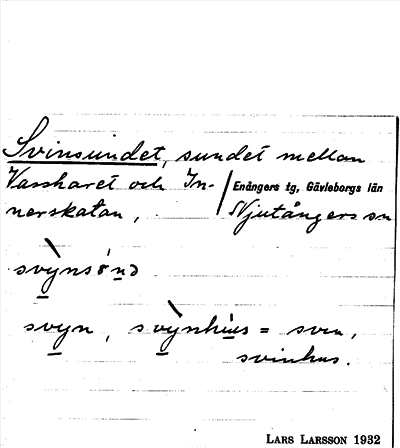 Svinsundet, sundet mellan
Vassharet och In- Enångers tg, Gävleborgs län
nerskatan, Njutångers sn
svỳnsónə
svyn, svỳnhùs = svin,
svinhus.
LARS LARSSON 1932